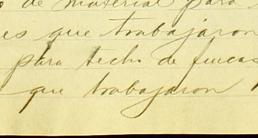 de material para
es que trabajaron
para techo de fincas
que trabajaron